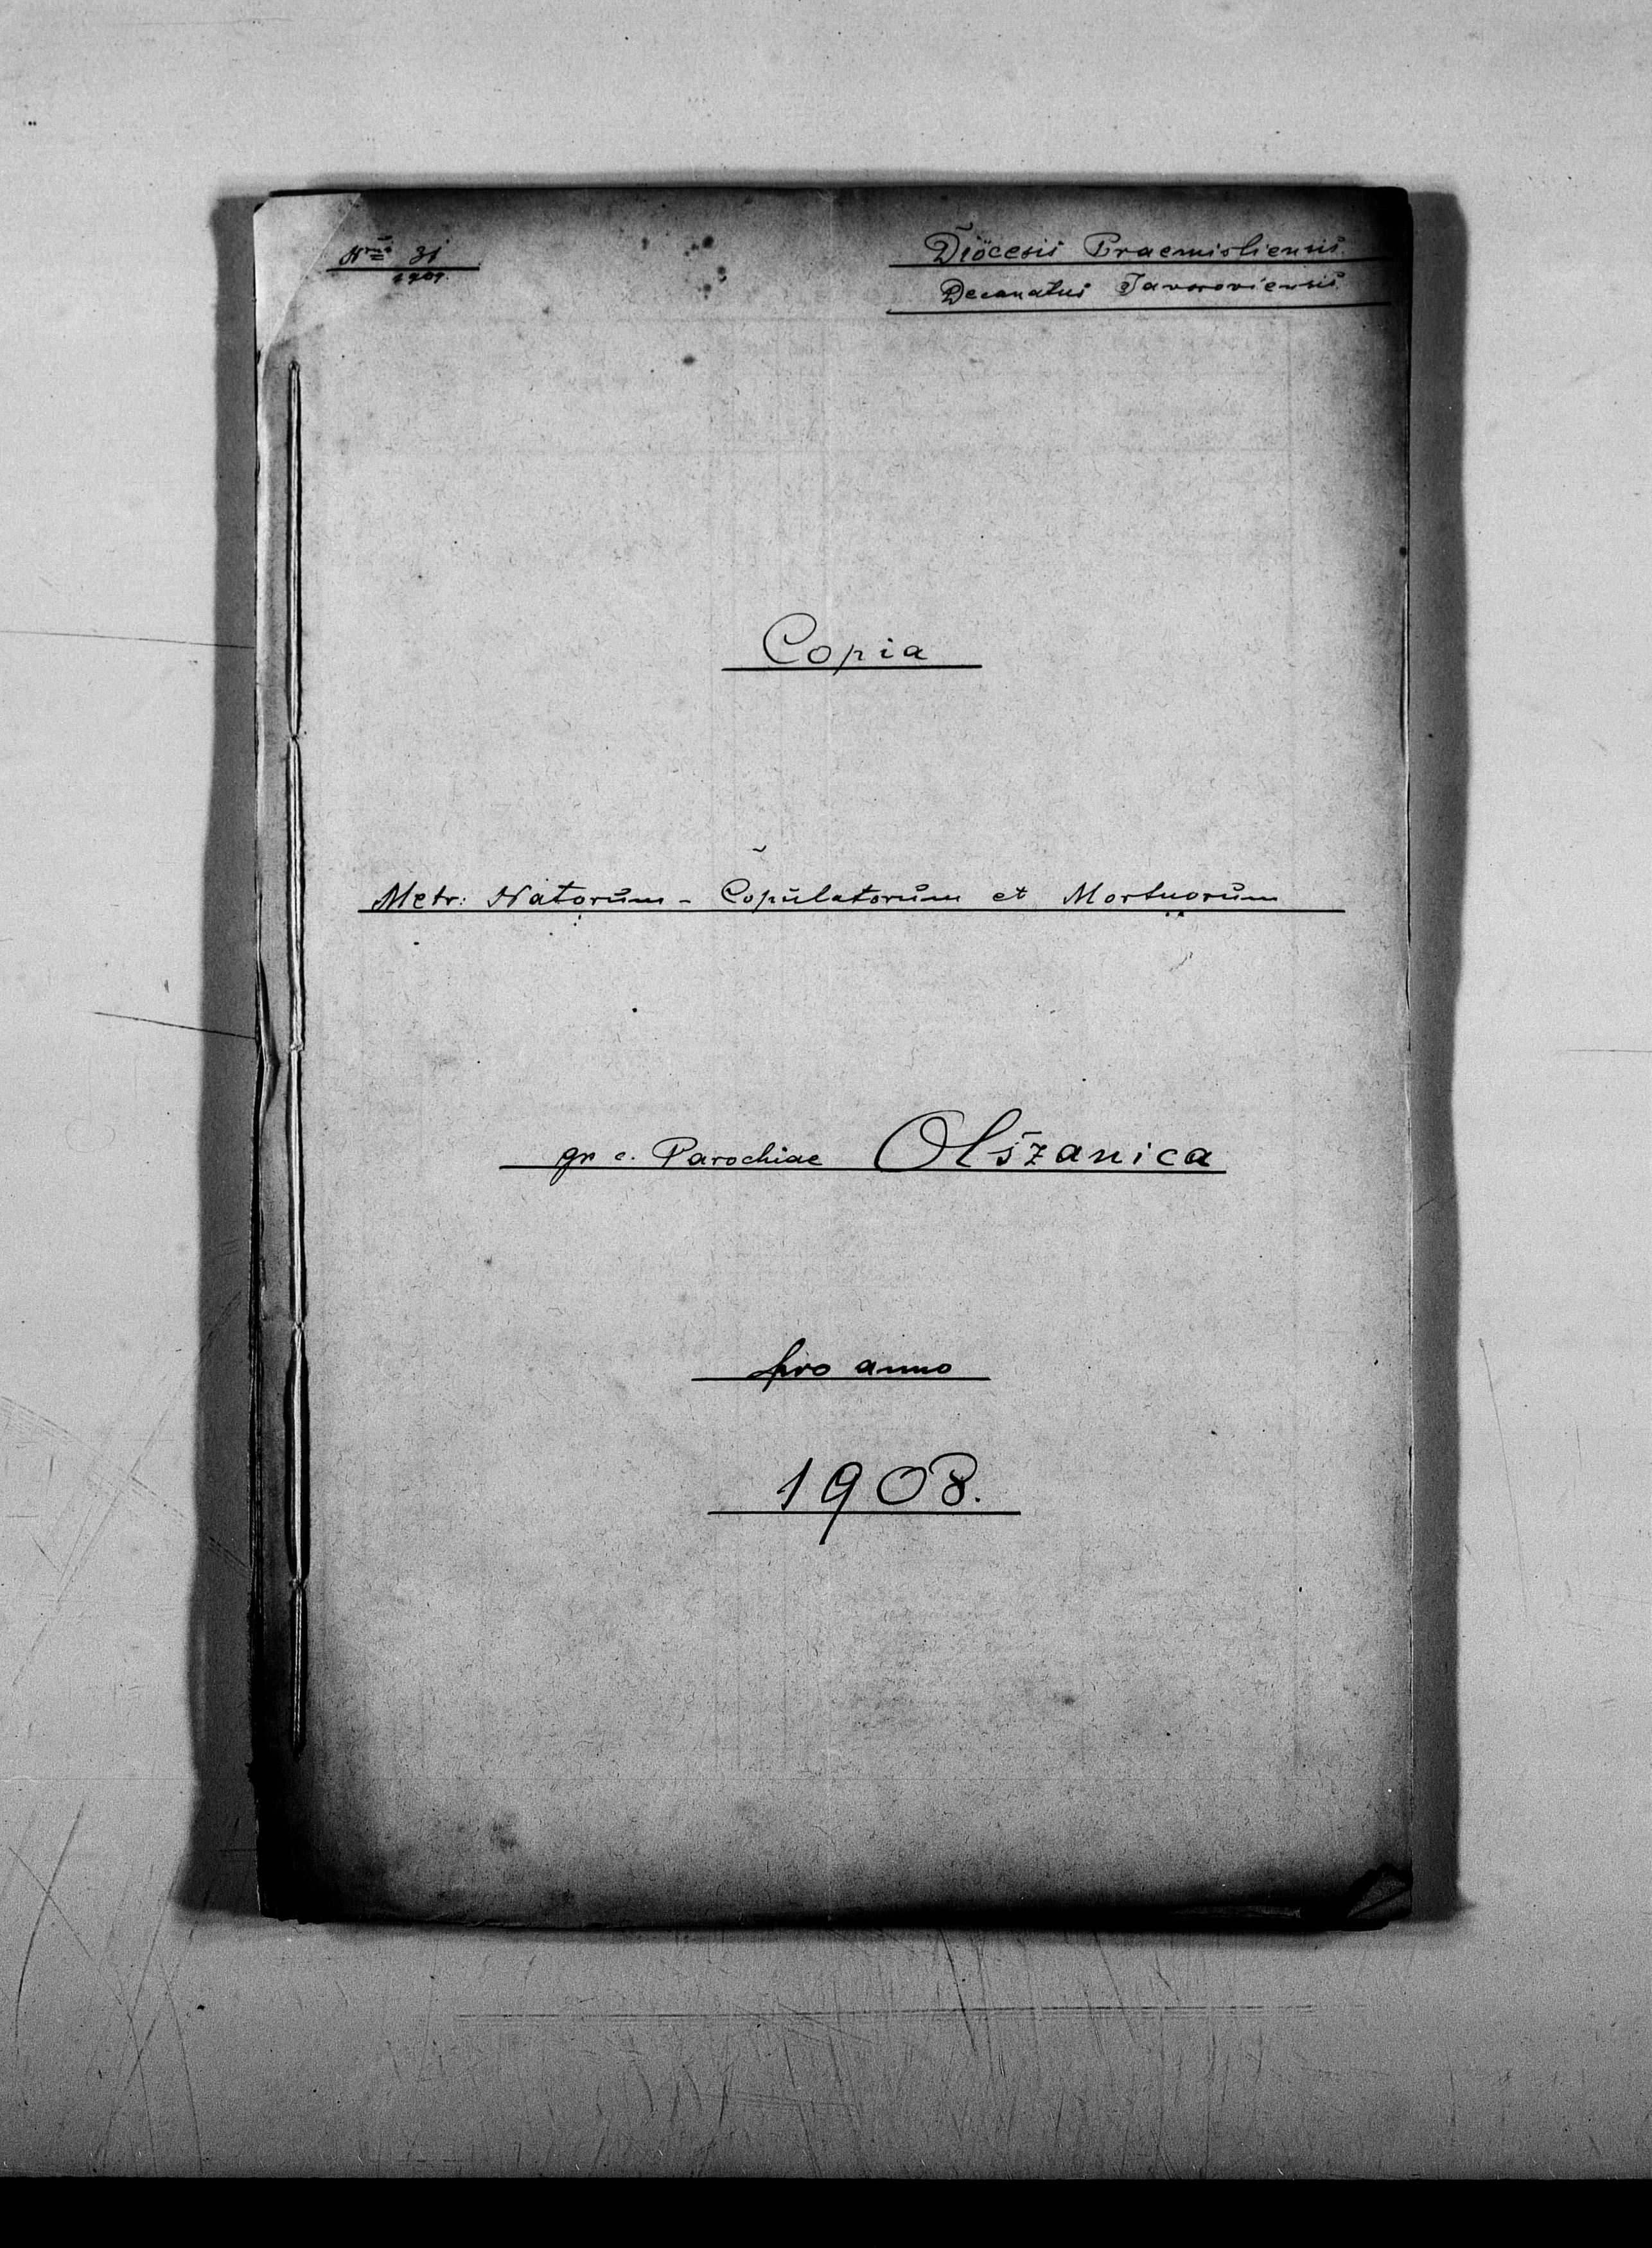 Nro 31
1909.
Diöcesis Praemisliensis.
Decanatus Javoroviensis.
Copia
Metr: Natorŭm - Copŭlatorŭm et Mortuorŭm
gr c. Parochiae Olszanica
pro anno
1908.